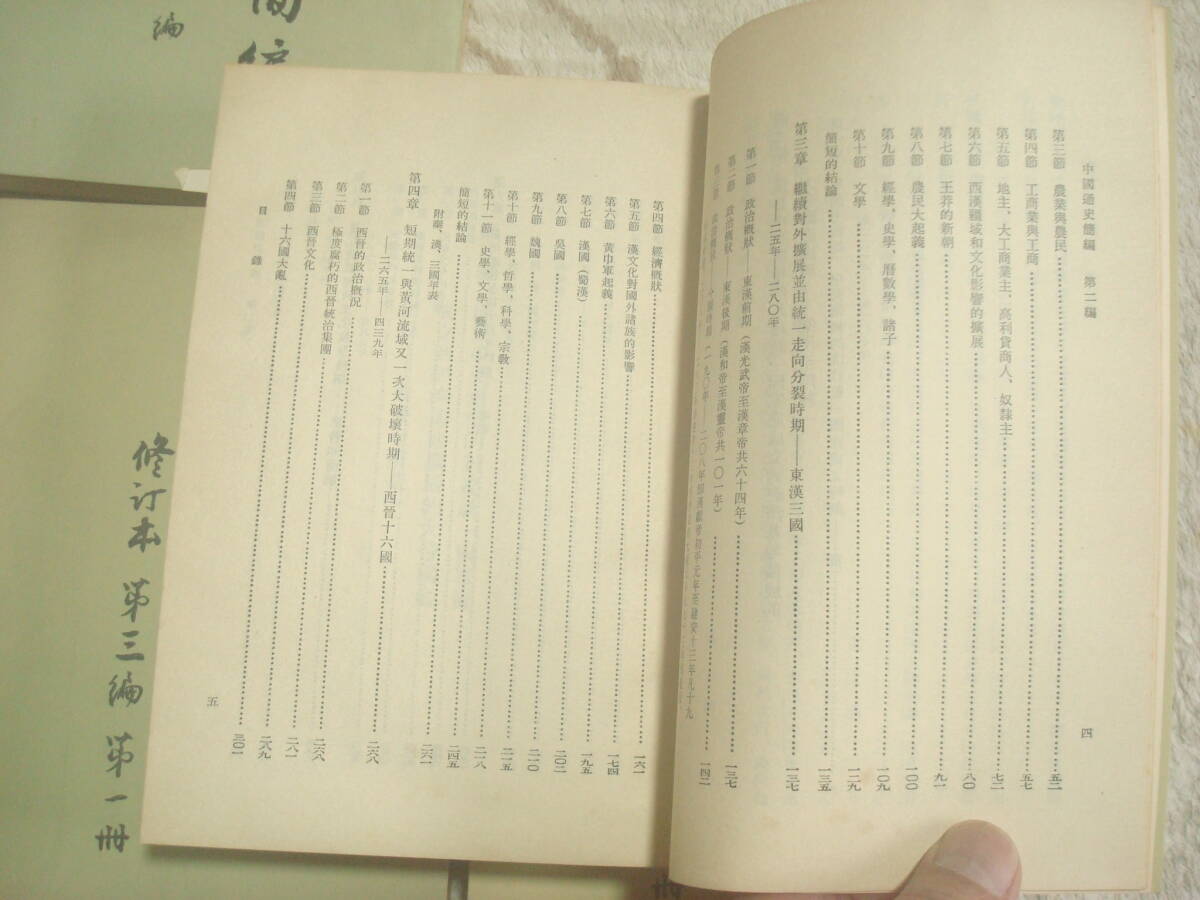 中國通史簡編　第二編
四
第三節　農業與農民……五二
第四節　工商業與工商……五七
第五節　地主、大工商業主、高利貸商人、奴隸主……七二
第六節　西漢疆域和文化影響的擴展……八〇
第七節　王莽的新朝……九一
第八節　農民大起義……一〇〇
第九節　經學，史學，曆數學，諸子……一〇九
第十節　文學……一二九
簡短的結論……一三五
第三章　繼續對外擴展並由統一走向分裂時期——東漢三國……一三七
——二五年——二八〇年
第一節　政治概狀　東漢前期（漢光武帝至漢章帝共六十四年）……一三七
第二節　政治概狀　東漢後期（漢和帝至漢靈帝共一〇一年）……一四二
第四節　經濟概狀……一六一
第五節　漢文化對國外諸族的影響……一七四
第六節　黃巾軍起義……一九五
第七節　漢國（蜀漢）……二〇二
第八節　吳國……二一〇
第九節　魏國……二一五
第十節　經學，哲學，科學，宗教……二一八
第十一節　史學、文學、藝術……二四五
簡短的結論……二六一
附東、漢、三國年表
第四章　短期統一與黃河流域又一次大破壞時期——西晉十六國……二六八
——二六五年——四三九年
第一節　西晉的政治概況……二六八
第二節　極度腐朽的西晉統治集團……二八一
第三節　西晉文化……二八九
第四節　十六國大亂……三〇一
目　錄
五
編
修订本 第三編 第一册
册